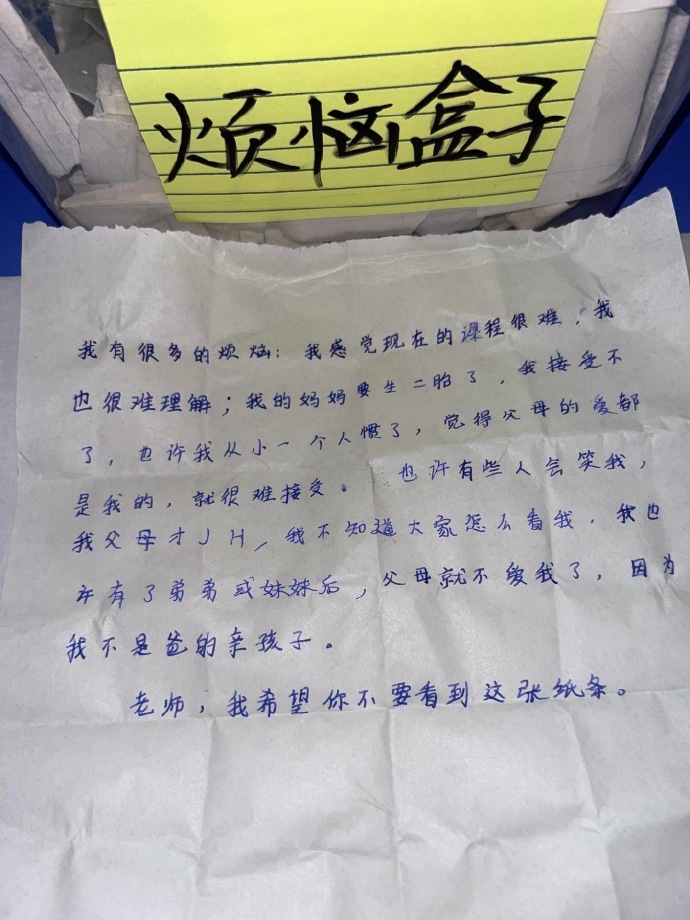 烦恼盒子
我有很多的烦恼：我感觉现在的课程很难，我
也很难理解；我的妈妈要生二胎了，我接受不
了，也许我从小一个人惯了，觉得父母的爱都
是我的，就很难接受。 也许有些人会笑我，
我父母才JH，我不知道大家怎么看我，我也
许有了弟弟或妹妹后，父母就不爱我了，因为
我不是爸的亲孩子。
老师，我希望你不要看到这张纸条。